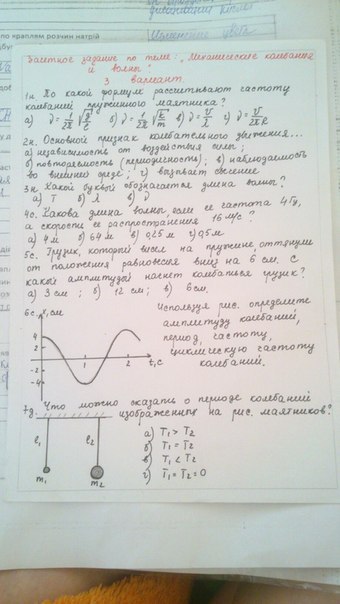 по краплям розчин натрій
Зачетное задание по теме: „Механические колебания
и волны"
3 вариант.
1н. По какой формуле рассчитывают частоту
колебаний пружинного маятника?
а) ν = 1/2π √g/ℓ б) ν = 1/2π √k/m в) ν = v/λ г) ν = v/2πR
2н. Основной признак колебательного движения...
а) независимость от воздействия силы;
б) повторяемость (периодичность); в) наблюдаемость
во внешней среде; г) вызывает свечение
3н. Какой буквой обозначается длина волны?
а) T б) λ в) ν
4с. Какова длина волны, если ее частота 4 Гц,
а скорость ее распространения 16 м/с?
а) 4 м б) 64 м в) 0,25 м г) 0,5 м
5с. Грузик, который висел на пружине, оттянули
от положения равновесия вниз на 6 см. С
какой амплитудой начнет колебаться грузик?
а) 3 см; б) 12 см; в) 6 см.
6с. x, см
4
2
0
-2
-4
1
2
t, с
Используя рис. определите
амплитуду колебаний,
период, частоту,
циклическую частоту
колебаний.
7д. Что можно сказать о периоде колебаний
изображенных на рис. маятников?
ℓ1
ℓ2
m1
m2
а) T1 > T2
б) T1 = T2
в) T1 < T2
г) T1 = T2 = 0